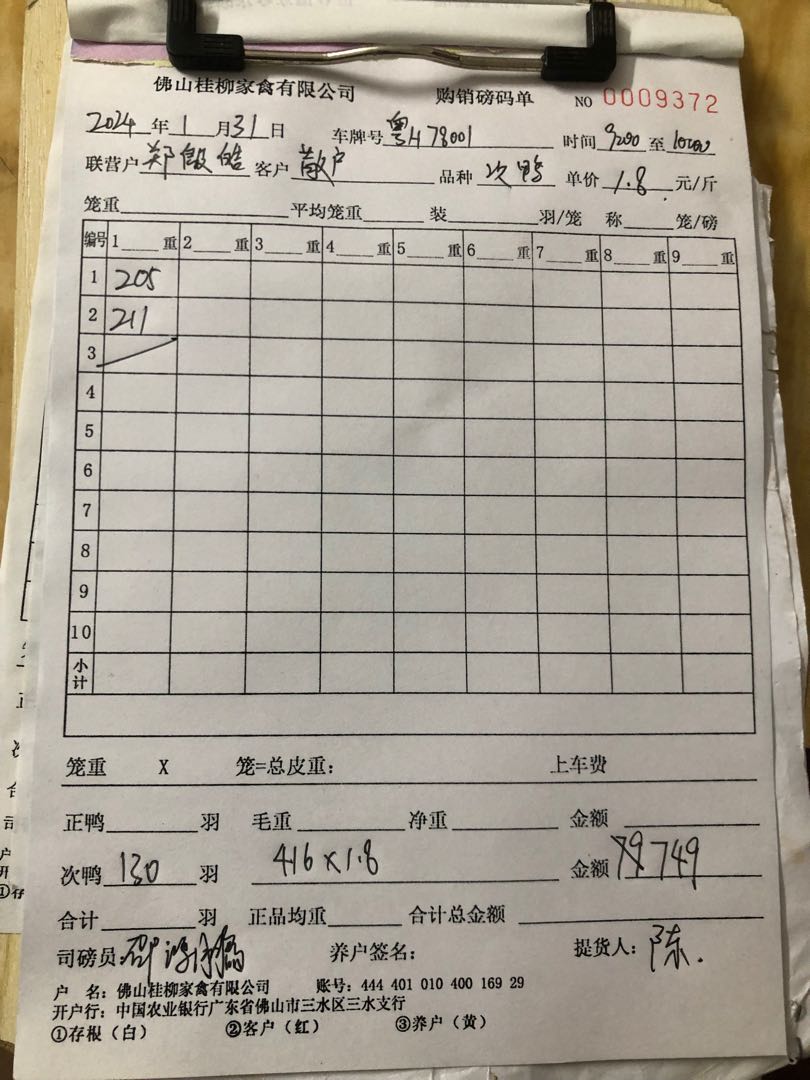 佛山桂柳家禽有限公司 购销磅码单 NO 0009372
2024年1月31日 车牌号 粤H78001 时间 9:00 至 10:00
联营户 郑殷皓 客户 散户 品种 次鸭 单价 1.8 元/斤
笼重 平均笼重 装 羽/笼 称 笼/磅
编号 1 重 2 重 3 重 4 重 5 重 6 重 7 重 8 重 9 重
1 205
2 211
3
4
5
6
7
8
9
10
小计
笼重 X 笼=总皮重: 上车费
正鸭 羽 毛重 净重 金额
次鸭 130 羽 416×1.8 金额 749
合计 羽 正品均重 合计总金额
司磅员: 养户签名: 提货人: 陈.
户 名: 佛山桂柳家禽有限公司 账号: 444 401 010 400 169 29
开户行: 中国农业银行广东省佛山市三水区三水支行
①存根(白) ②客户(红) ③养户(黄)